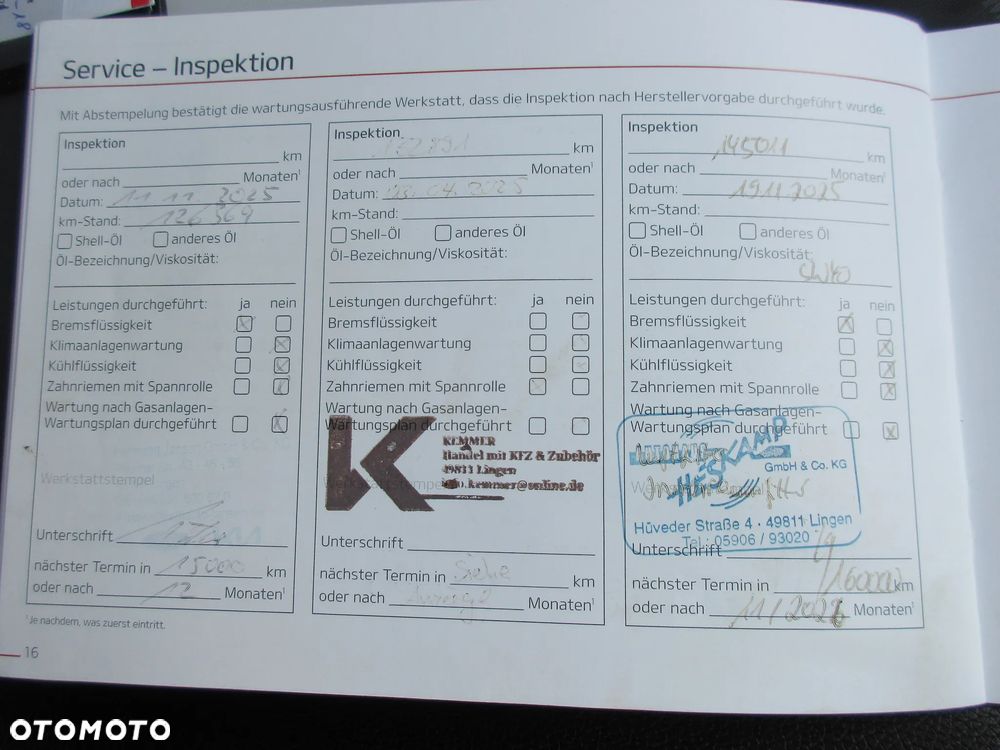 Service – Inspektion
Mit Abstempelung bestätigt die wartungsausführende Werkstatt, dass die Inspektion nach Herstellervorgabe durchgeführt wurde.
Inspektion
km
oder nach Monaten¹
Datum: 11 11 2025
km-Stand: 126 569
Shell-Öl anderes Öl
Öl-Bezeichnung/Viskosität:
Leistungen durchgeführt: ja nein
Bremsflüssigkeit
Klimaanlagenwartung
Kühlflüssigkeit
Zahnriemen mit Spannrolle
Wartung nach Gasanlagen-
Wartungsplan durchgeführt
Werkstattstempel
Unterschrift
nächster Termin in 15000 km
oder nach 12 Monaten¹
Inspektion
km
oder nach Monaten¹
Datum: 04. 2025
km-Stand:
Shell-Öl anderes Öl
Öl-Bezeichnung/Viskosität:
Leistungen durchgeführt: ja nein
Bremsflüssigkeit
Klimaanlagenwartung
Kühlflüssigkeit
Zahnriemen mit Spannrolle
Wartung nach Gasanlagen-
Wartungsplan durchgeführt
K
KEMMER
Handel mit KFZ & Zubehör
49811 Lingen
kemmer@online.de
Unterschrift
nächster Termin in Siehe km
oder nach Monaten¹
Inspektion
145011 km
oder nach Monaten¹
Datum: 19 11 2025
km-Stand:
Shell-Öl anderes Öl
Öl-Bezeichnung/Viskosität:
Leistungen durchgeführt: ja nein
Bremsflüssigkeit
Klimaanlagenwartung
Kühlflüssigkeit
Zahnriemen mit Spannrolle
Wartung nach Gasanlagen-
Wartungsplan durchgeführt
HESKAMP
GmbH & Co. KG
Hüveder Straße 4 · 49811 Lingen
Tel.: 05906 / 93020
Unterschrift
nächster Termin in 160000 km
oder nach 11/2026 Monaten¹
¹Je nachdem, was zuerst eintritt.
16
OTOMOTO